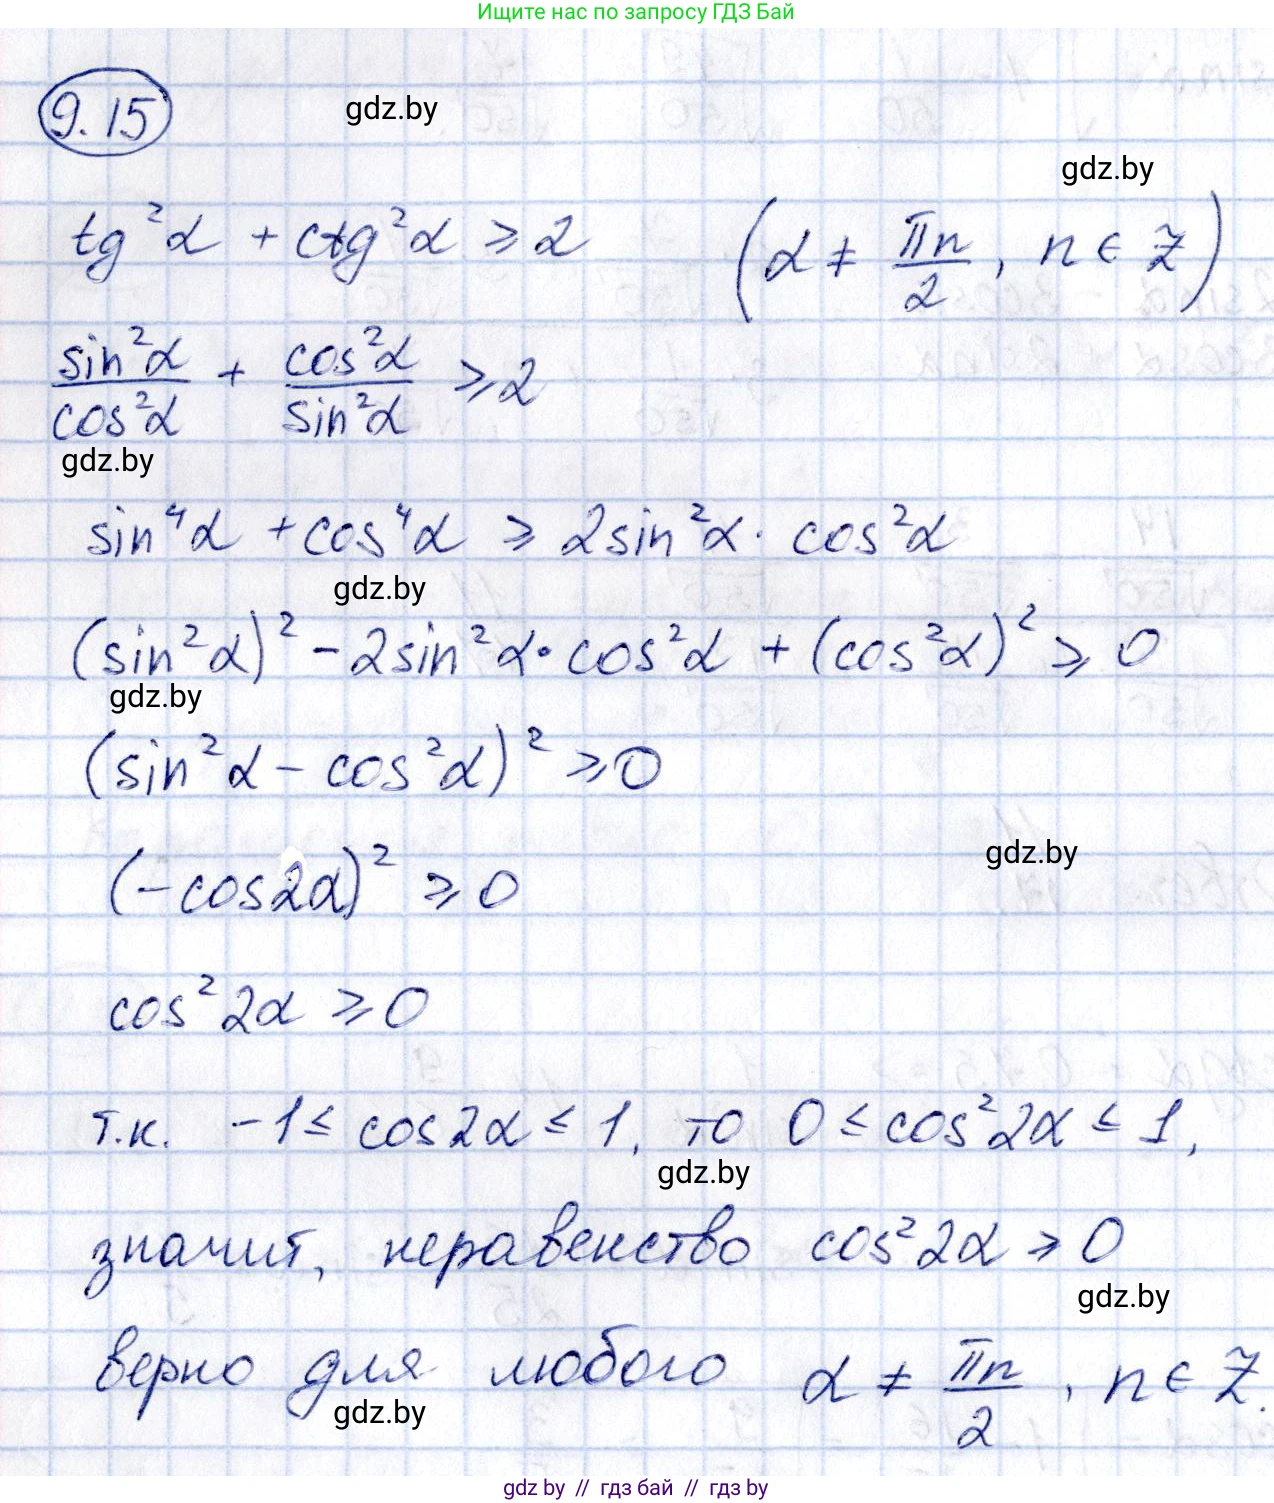 Ищите нас по запросу ГДЗ Бай
9.15 gdz.by
gdz.by
tg²α + ctg²α ⩾ 2 (α ≠ πn/2, n ∈ Z)
sin²α/cos²α + cos²α/sin²α ⩾ 2
gdz.by
sin⁴α + cos⁴α ⩾ 2sin²α · cos²α
gdz.by
(sin²α)² − 2sin²α · cos²α + (cos²α)² ⩾ 0
gdz.by
(sin²α − cos²α)² ⩾ 0
(−cos2α)² ⩾ 0
gdz.by
cos²2α ⩾ 0
т.к. −1 ≤ cos2α ≤ 1, то 0 ≤ cos²2α ≤ 1,
gdz.by
значит, неравенство cos²2α ⩾ 0
gdz.by
верно для любого α ≠ πn/2, n ∈ Z.
gdz.by
gdz by // гдз бай // гдз by